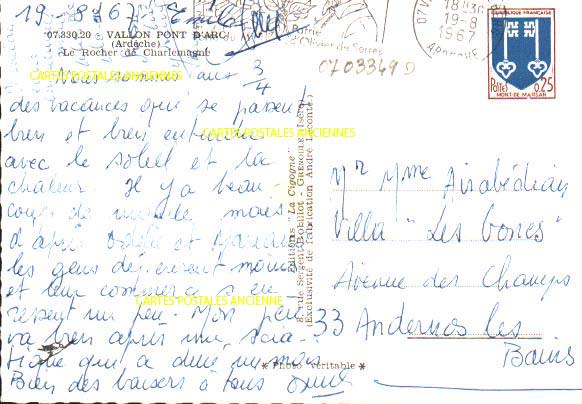 19-8-67
07.330.20 - VALLON PONT D'ARC
(Ardèche)
Le Rocher de Charlemagne
Nous sommes aux 3/4
des vacances qui se passent
bien et bien entendu
avec le soleil et la
chaleur. Il y a beau-
coup de monde mais
d'après Odile et
les gens dépensent moins
et leur commerce s'en
ressent un peu. Mon père
va bien après une scia-
tique qui a duré un mois
Bien des baisers à tous
CARTES POSTALES ANCIENNES
CARTES POSTALES ANCIENNES
CARTES POSTALES ANCIENNES
Editions "La Cigogne"
8, rue Sergent Bobillot - GRENOBLE (Isère)
Exclusivité de fabrication André Leconte
* Photo Véritable *
Patrie
d'Olivier de Serres
18H30
19-8
1967
ARDECHE
C703349D
REPUBLIQUE FRANÇAISE
POSTES 0,25
MONT-DE-MARSAN
Mr Mme Airabédian
Villa "Les
Avenue des Champs
33 Andernos les
Bains